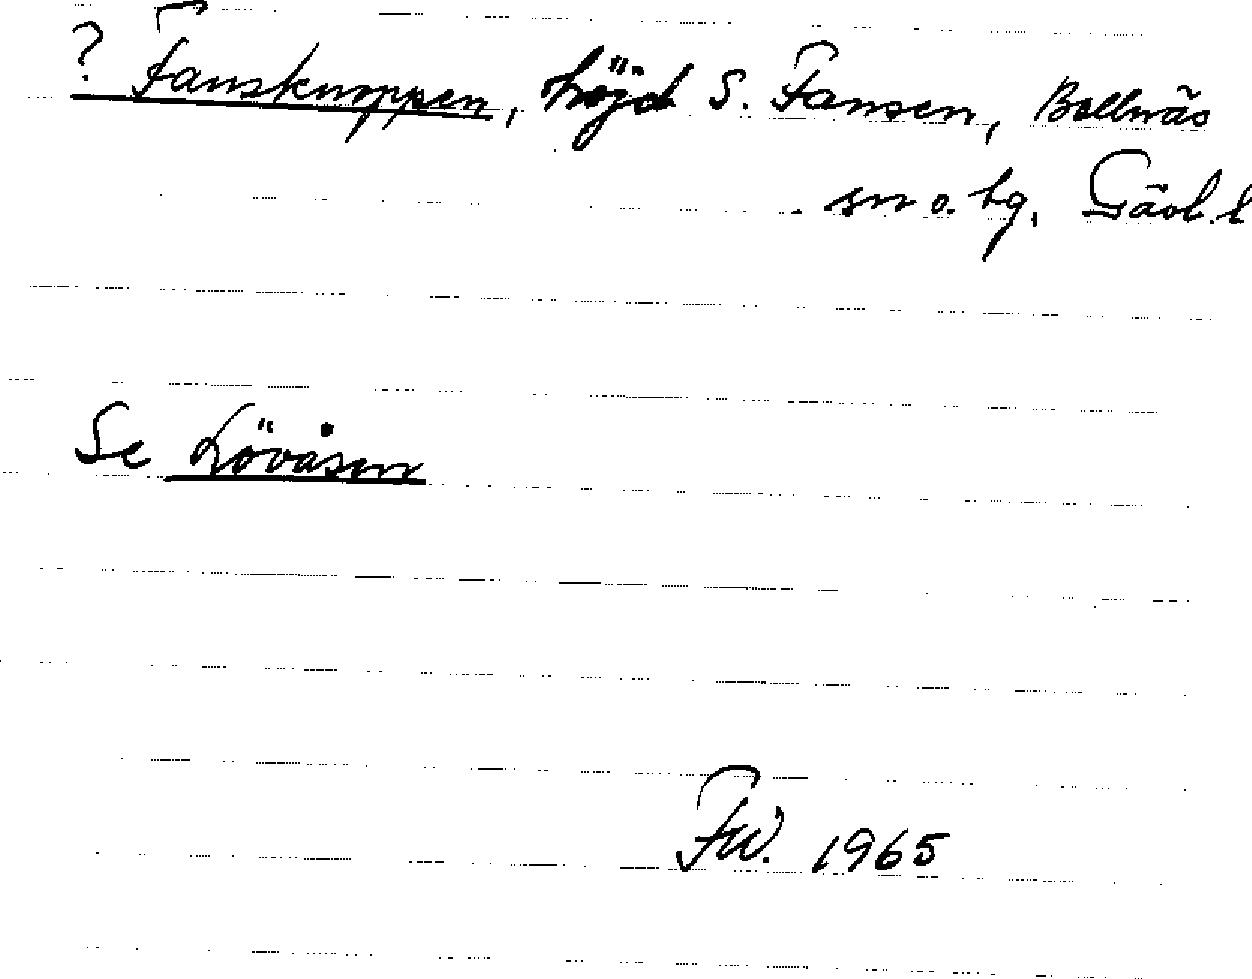 ? Fansknoppen, höjd S. Fansen, Bollnäs
sn o. tg, Gävl. l
Se Lövåsen
FW. 1965